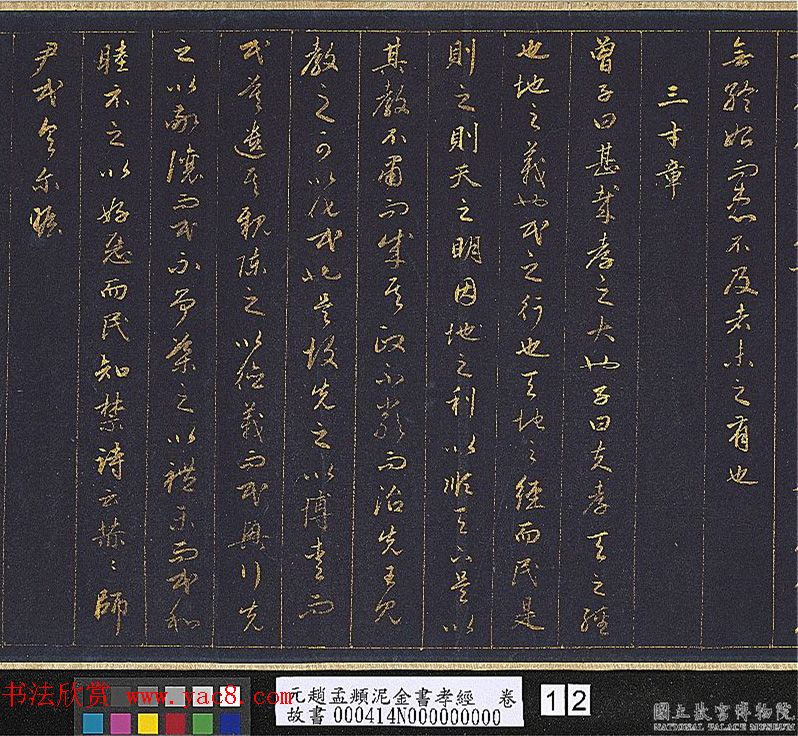 無終始而患不及者未之有也
三才章
曾子曰甚哉孝之大也子曰夫孝天之經
也地之義也民之行也天地之經而民是
則之則天之明因地之利以順天下是以
其教不肅而成其政不嚴而治先王見
教之可以化民也是故先之以博愛而
民莫遺其親陳之以德義而民興行先
之以敬讓而民不爭導之以禮樂而民和
睦示之以好惡而民知禁詩云赫〻師
尹民具爾瞻
书法欣赏 www.yac8.com
元趙孟頫泥金書孝經 卷
故書 000414N000000000
12
國立故宮博物院
NATIONAL PALACE MUSEUM